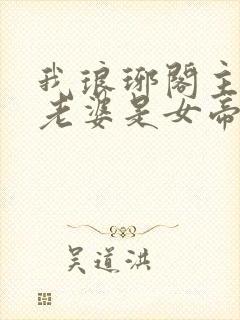 我琅琊閣主
老婆是女帝
吴道洪